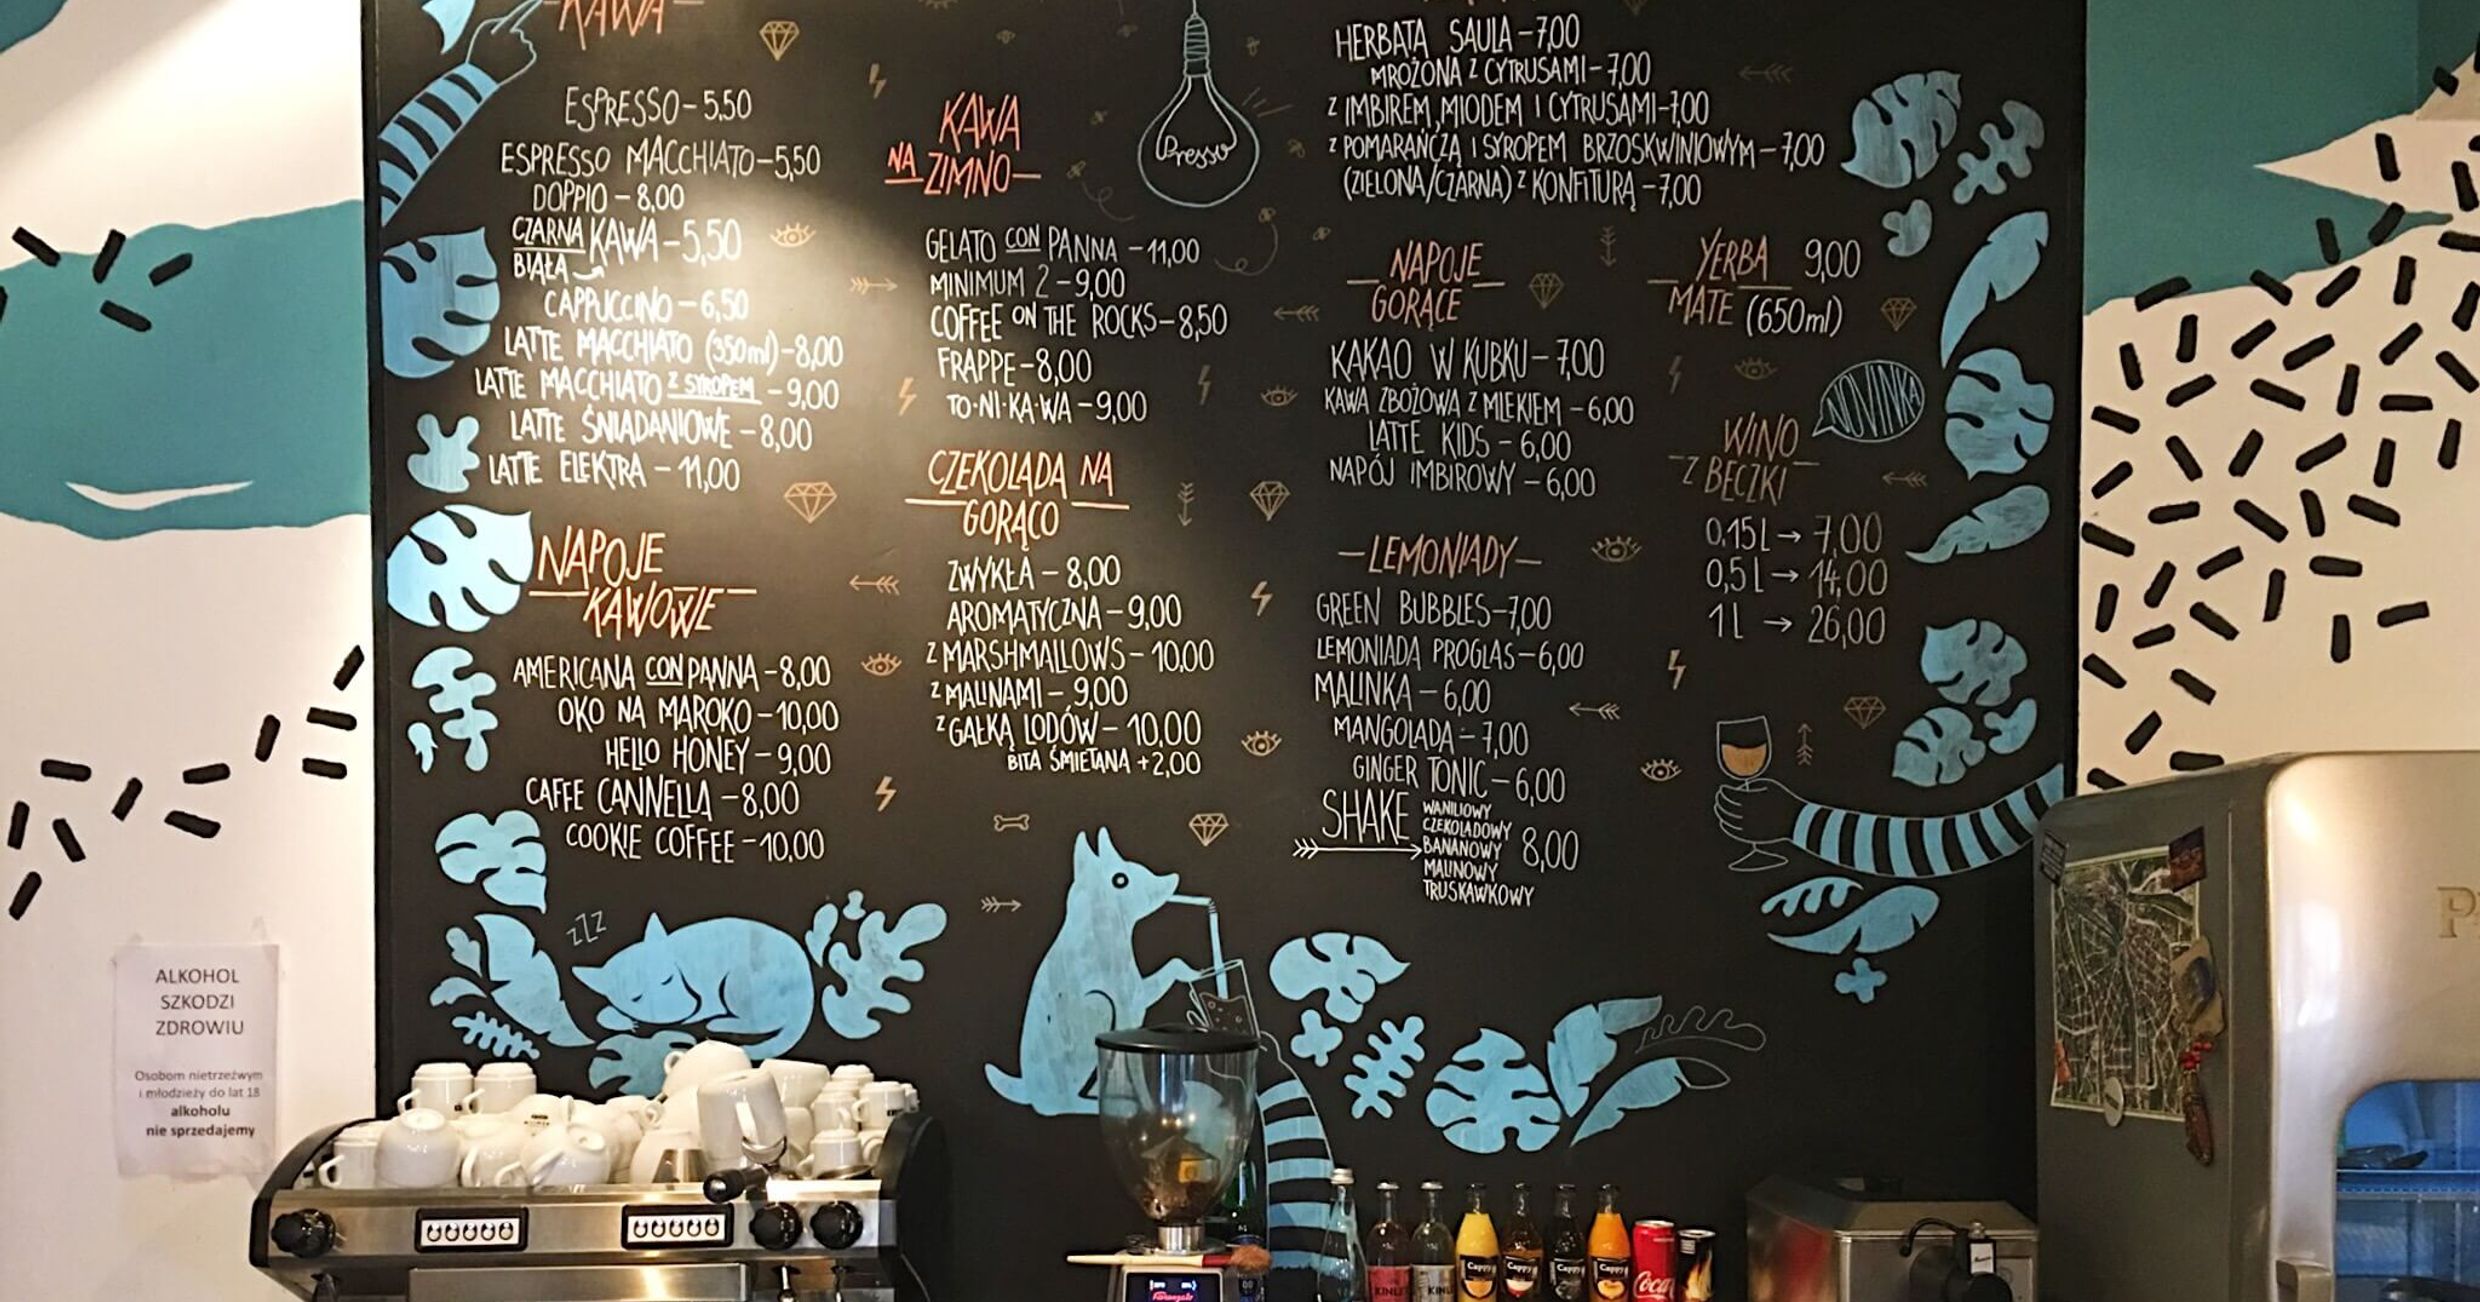 KAWA
ESPRESSO-5.50
ESPRESSO MACCHIATO-5,50
DOPPIO-8,00
CZARNA KAWA-5,50
BIAŁA
CAPPUCCINO-6,50
LATTE MACCHIATO (350ml)-8,00
LATTE MACCHIATO Z SYROPEM-9,00
LATTE ŚNIADANIOWE-8,00
LATTE ELEKTRA-11,00
NAPOJE
KAWOWE
AMERICANA CON PANNA-8,00
OKO NA MAROKO-10,00
HELLO HONEY-9,00
CAFFE CANNELLA-8,00
COOKIE COFFEE-10,00
zzz
KAWA
NA ZIMNO
GELATO CON PANNA-11,00
MINIMUM 2-9,00
COFFEE ON THE ROCKS-8,50
FRAPPE-8,00
TO·NI·KA·WA-9,00
CZEKOLADA NA
GORĄCO
ZWYKŁA-8,00
AROMATYCZNA-9,00
Z MARSHMALLOWS-10,00
Z MALINAMI-9,00
Z GAŁKĄ LODÓW-10,00
BITA ŚMIETANA +2,00
Presso
HERBATA SAULA-7,00
MROŻONA Z CYTRUSAMI-7,00
Z IMBIREM, MIODEM I CYTRUSAMI-7,00
Z POMARAŃCZĄ I SYROPEM BRZOSKWINIOWYM-7,00
(ZIELONA/CZARNA) Z KONFITURĄ-7,00
NAPOJE
GORĄCE
KAKAO W KUBKU-7,00
KAWA ZBOŻOWA Z MLEKIEM-6,00
LATTE KIDS-6,00
NAPÓJ IMBIROWY-6,00
LEMONIADY
GREEN BUBBLES-7,00
LEMONIADA PROGLAS-6,00
MALINKA-6,00
MANGOLADA-7,00
GINGER TONIC-6,00
SHAKE
WANILIOWY
CZEKOLADOWY
BANANOWY
MALINOWY
TRUSKAWKOWY
8,00
YERBA 9,00
MATE (650ml)
NOVINKA
WINO
Z BECZKI
0,15L→7,00
0,5L→14,00
1L→26,00
ALKOHOL
SZKODZI
ZDROWIU
Osobom nietrzeźwym
i młodzieży do lat 18
alkoholu
nie sprzedajemy
KINLEY
Cappy
Cappy
Cappy
Cappy
Coca